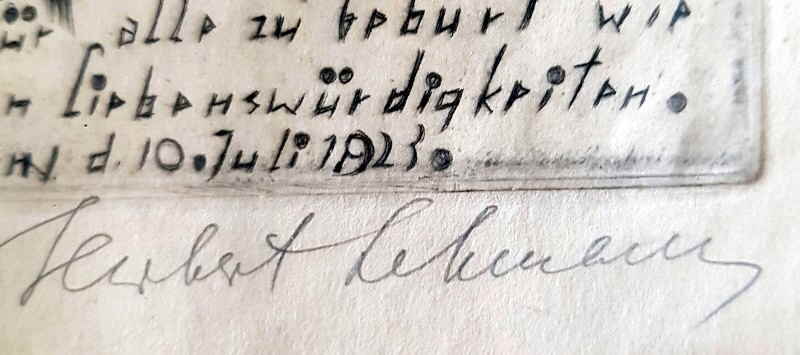 ür alle zu Geburt wie
n Liebenswürdigkeiten.
d. 10. Juli 1923.
Herbert Lehmann